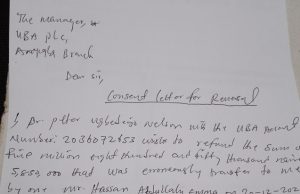 The Manager,
UBA Plc,
Branch
Dear Sir,
Consent Letter for Reversal
I, Dr. Nelson with the UBA Account
Number: 2036072853 wish to refund the sum of
five million eight hundred and fifty thousand naira
that was erroneously transfer to me
by one Mr. Hassan Abdullahi on